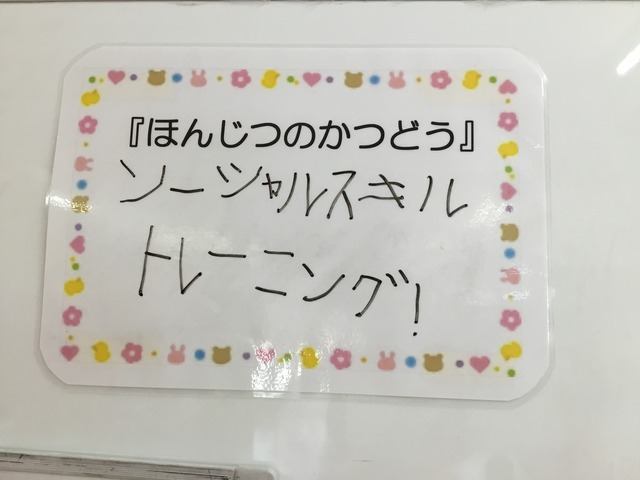 『ほんじつのかつどう』
ソーシャルスキル
トレーニング!